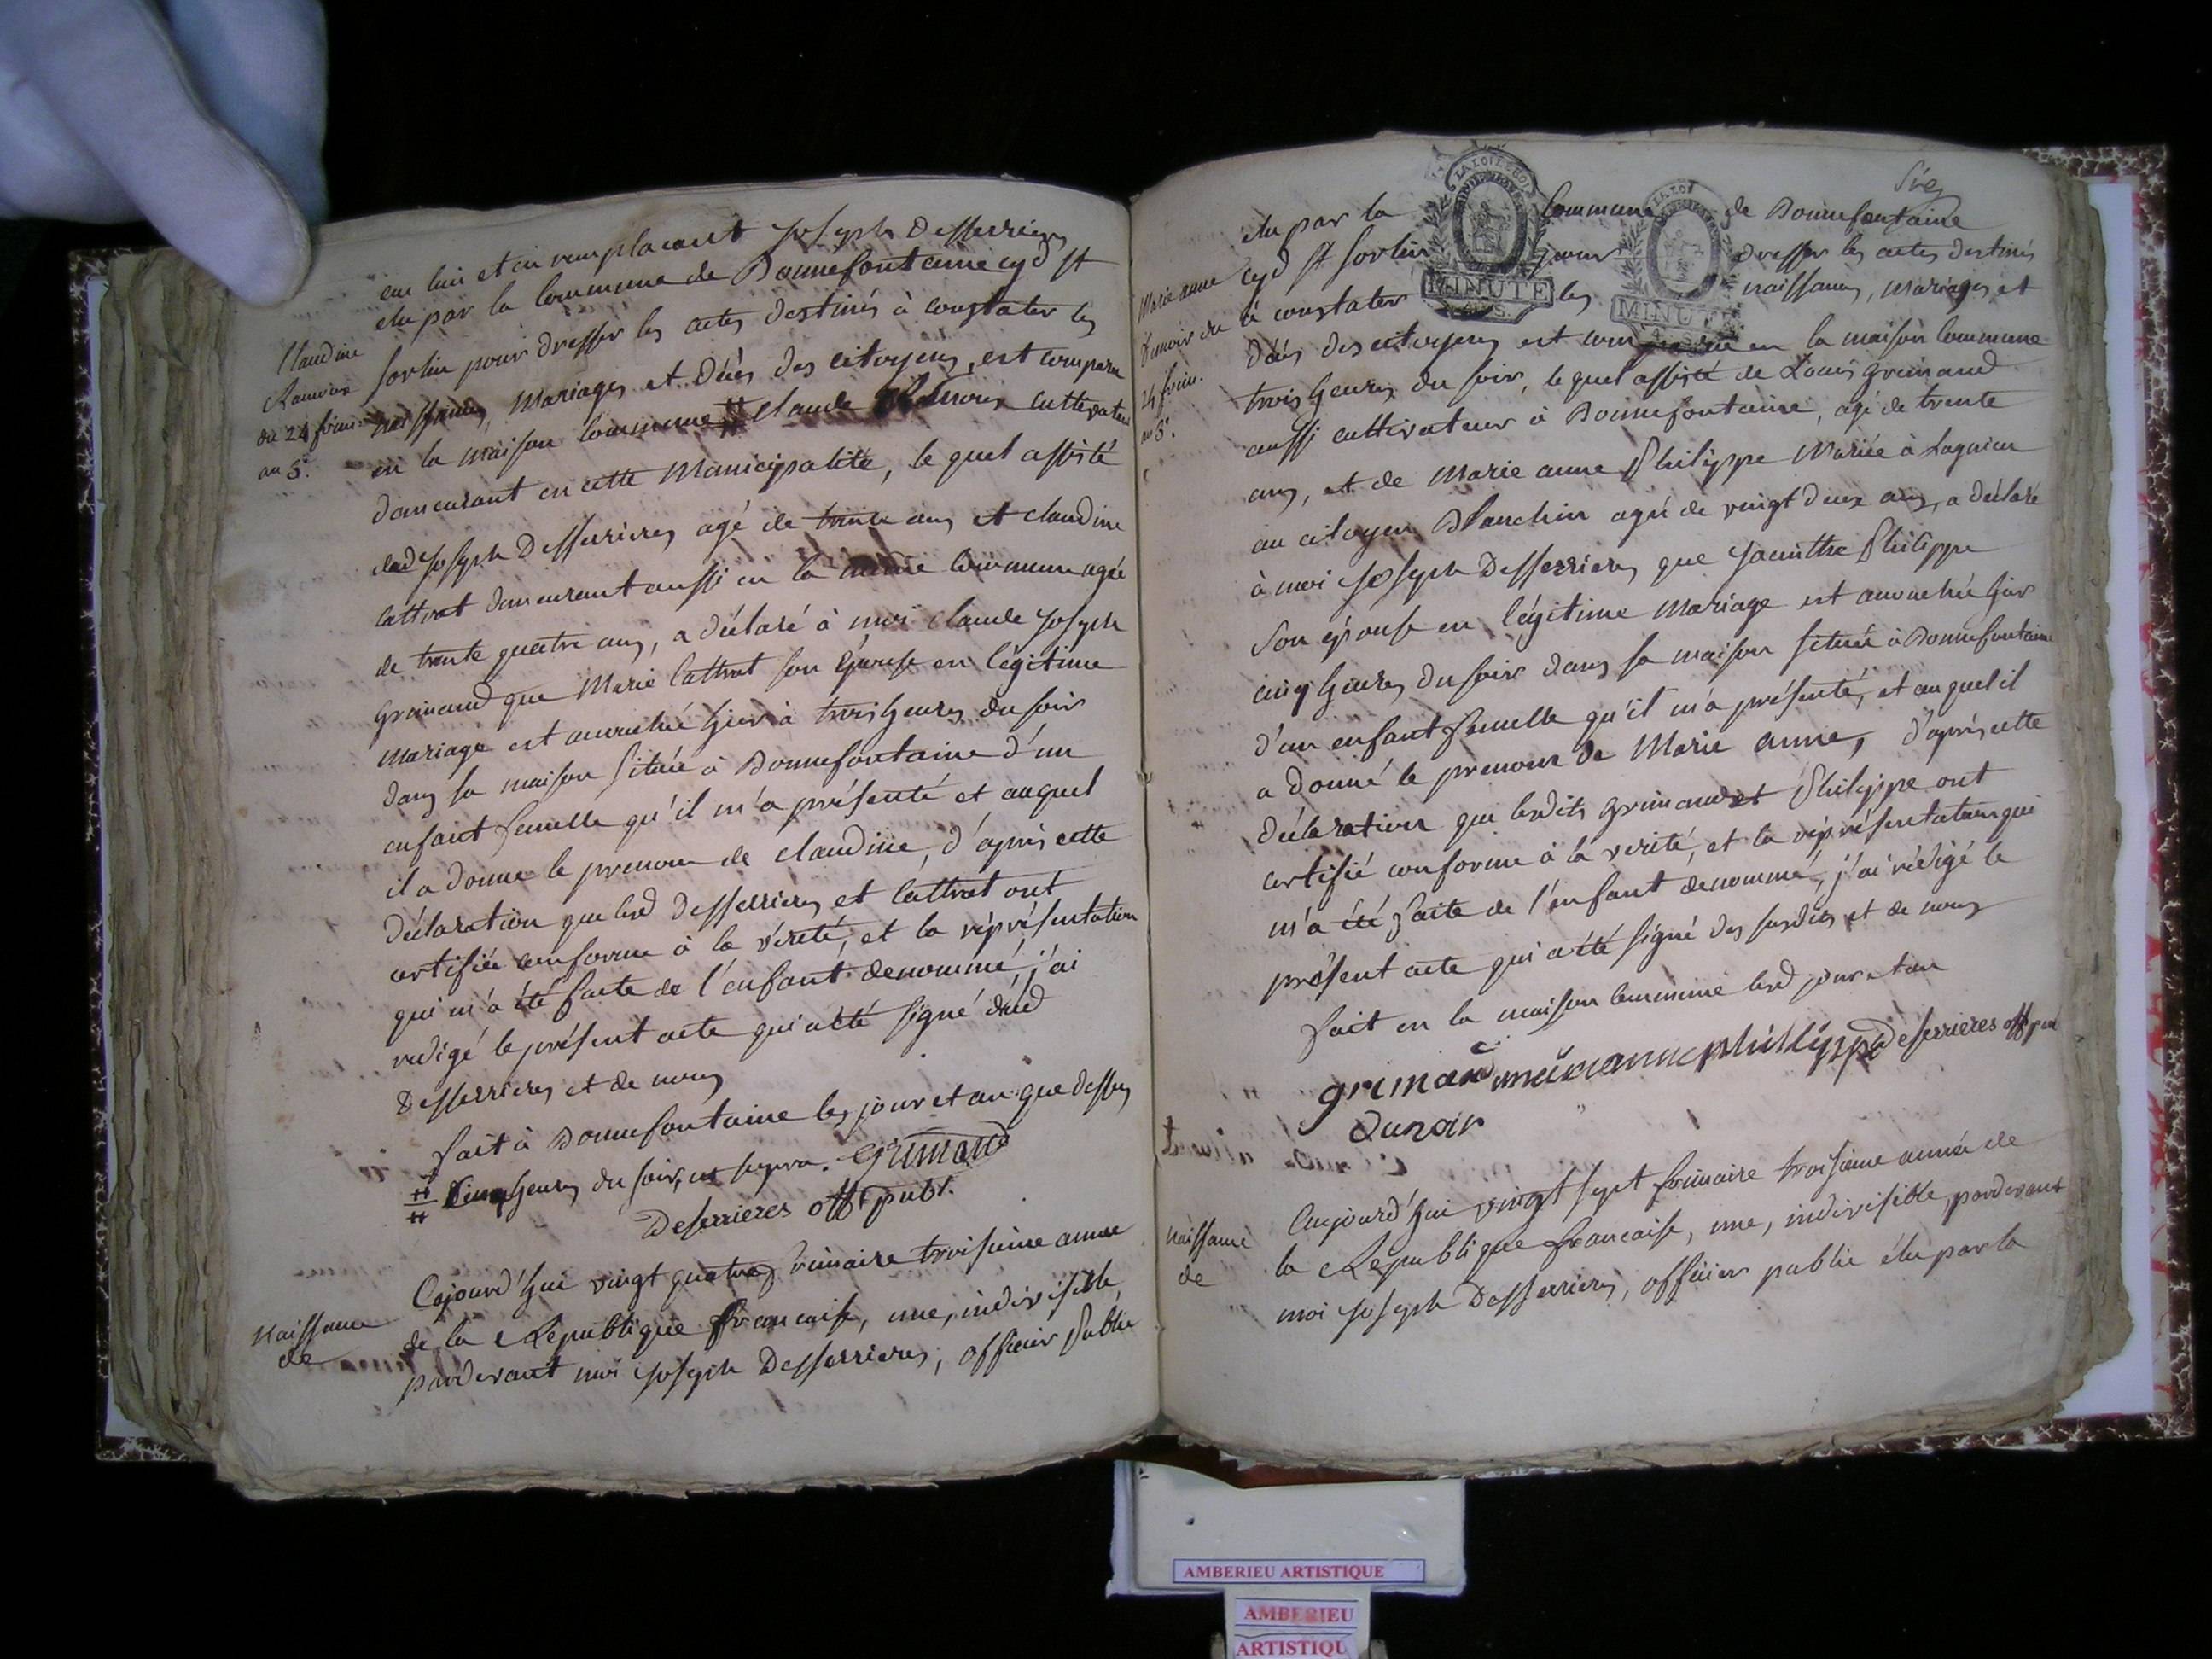 en lui et en remplacant Joseph Desserrieres
elu par la Commune de Bonnefontaine cyd St
Sorlin pour dresser les actes destinés à constater les
naissances, Mariages et Décès des citoyens, est comparu
en la maison Commune # Claude cultivateur
demeurant en cette Municipalité, le quel assisté
dud Joseph Desserrieres agé de trente ans et claudine
Cattrat demeurant aussi en la même Commune agée
de trente quatre ans, a déclaré à moi Claude Joseph
Grimaud que Marie Cattrat son Epouse en légitime
Mariage est accouchée hier à trois heures du soir
dans sa maison située à Bonnefontaine d'un
enfant femelle qu'il m'a présenté et auquel
il a donné le prenom de claudine, d'après cette
déclaration que lesd Desserrieres et Cattrat ont
certifiée conforme à la vérité, et la réprésentation
qui m'a été faite de l'enfant denommé, j'ai
redigé le présent acte qui a été signé dud
Desserrieres et de nous
fait à Bonnefontaine les jour et an que dessus
# Cinq heures du soir, Grimaud
Deserrieres off publ.
Claudine
du 24 frim.
an 3.
Naissance
de
Cejourd'hui vingt quatre frimaire troisieme année
de la République francaise, une, indivisible,
pardevant moi Joseph Desserrieres, officier Public
elu par la Commune de Bonnefontaine
cyd St Sorlin pour dresser les actes destinés
à constater les naissances, mariages et
décès des citoyens est comparu en la maison Commune
trois heures du soir, le quel assisté de Louis Grimaud
aussi cultivateur à Bonnefontaine, agé de trente
ans, et de Marie anne Philippe Mariée à Lagnieu
au citoyen Blanchin agée de vingt deux ans, a déclaré
à moi Joseph Desserrieres que Jacinthe Philippe
Son épouse en légitime Mariage est accouchée hier
cinq heures du soir dans sa maison située à Bonnefontaine
d'un enfant femelle qu'il m'a présenté, et auquel il
a donné le prenom de Marie anne, d'après cette
déclaration que lesdits Grimaud et Philippe ont
certifié conforme à la verité, et la réprésentation qui
m'a été faite de l'enfant denommé, j'ai rédigé le
présent acte qui a été signé des susdits et de nous
fait en la maison Commune lesd jour et an
grimaud marianne phillippe Deserrieres off pub
Dunoir
Marie anne
Dunoir du
24 frim.
an 3.
MINUTE
MINUTE
Naissance
de
Cejourd'hui vingt sept frimaire troisieme année de
la République francaise, une, indivisible, pardevant
moi Joseph Desserrieres, officier public élu par la
AMBERIEU ARTISTIQUE
AMBERIEU
ARTISTIQU